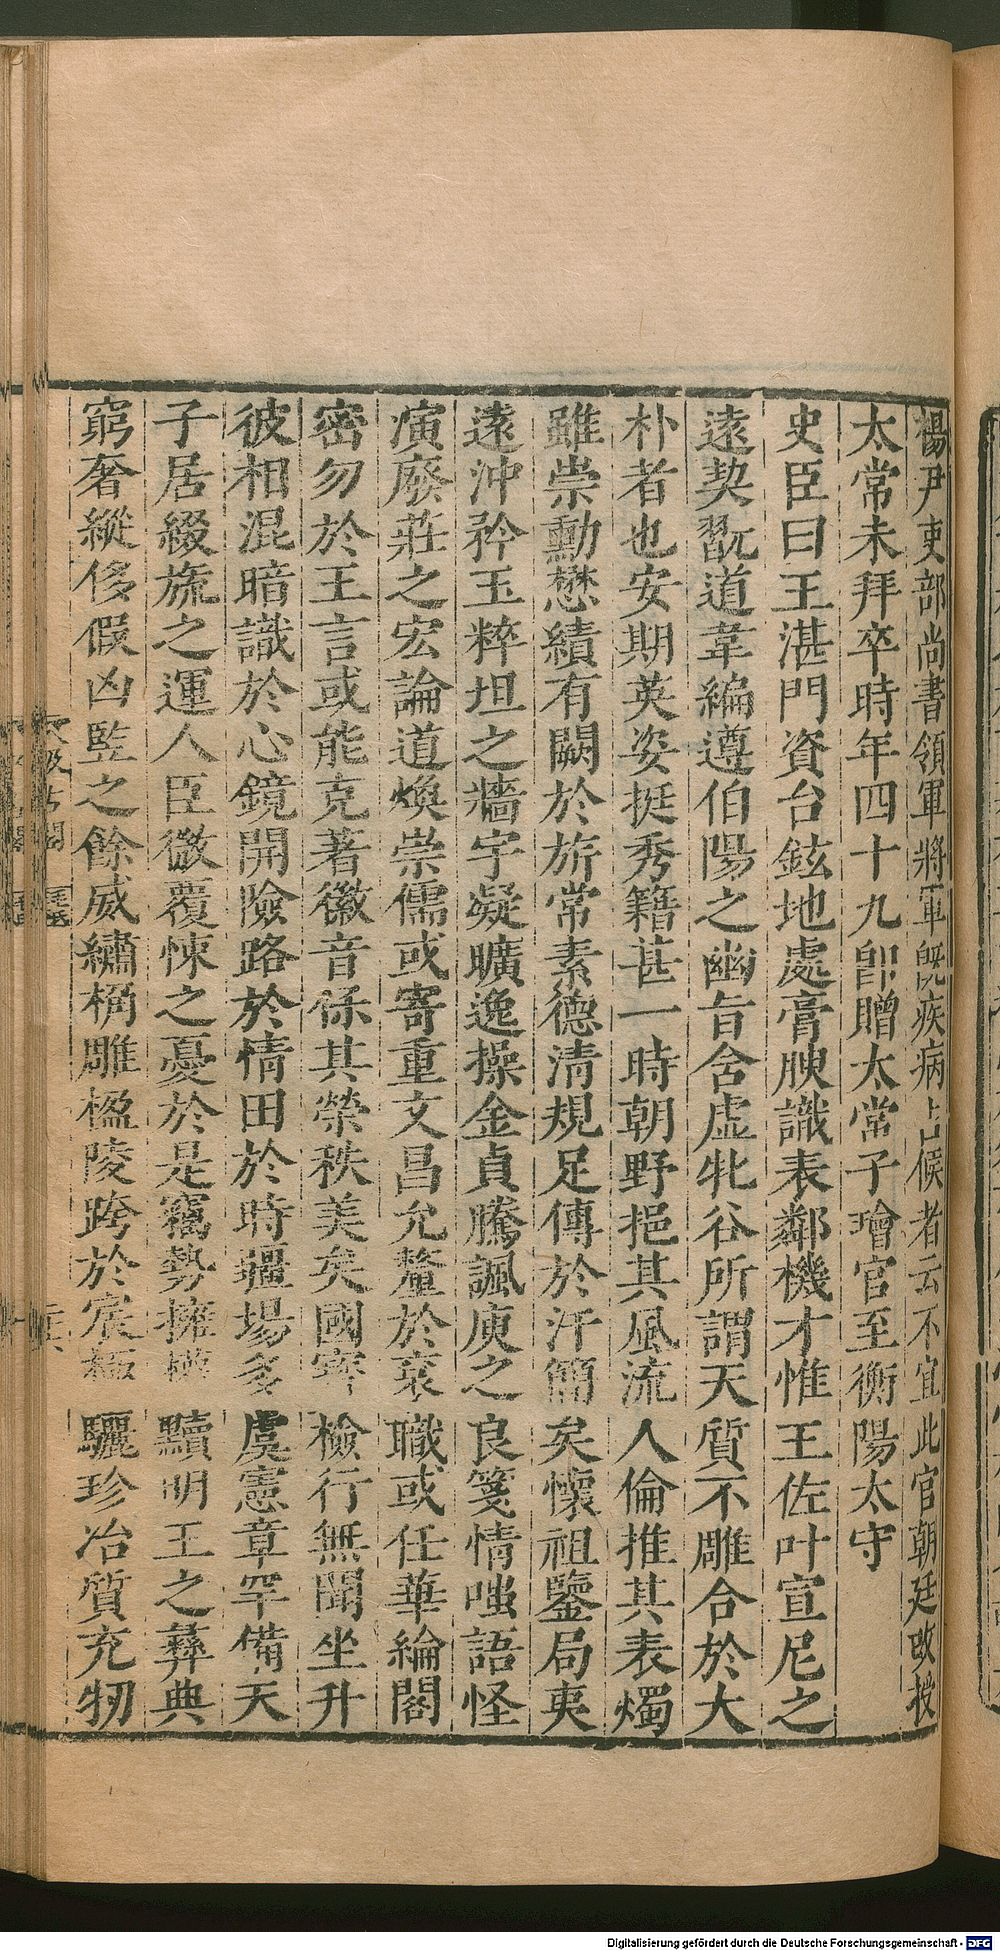 楊尹吏部尚書領軍將軍既疾病占候者云不宜此官朝廷改授
太常未拜卒時年四十九卽贈太常子璯官至衡陽太守
史臣曰王湛門資台鉉地處膏腴識表鄰機才惟王佐叶宣尼之
遠契翫道韋編遵伯陽之幽旨含虛牝谷所謂天質不雕合於大
朴者也安期英姿挺秀籍甚一時朝野挹其風流人倫推其表燭
雖崇勳懋績有闕於旂常素德清規足傳於汗簡矣懷祖鑒局夷
遠沖矜玉粹坦之牆宇凝曠逸操金貞騰諷庾之良箋情嗤語怪
演廢莊之宏論道煥崇儒或寄重文昌允釐於袞職或任華綸閣
密勿於王言或能克著徽音保其榮秩美矣國寶檢行無聞坐升
彼相混暗識於心鏡開險路於情田於時疆埸多虞憲章罕備天
子居綴旒之運人臣微覆悚之憂於是竊勢擁權黷明王之彝典
窮奢縱侈假凶豎之餘威繡桷雕楹陵跨於宸極驪珍冶質充牣
汲古閣
Digitalisierung gefördert durch die Deutsche Forschungsgemeinschaft - DFG